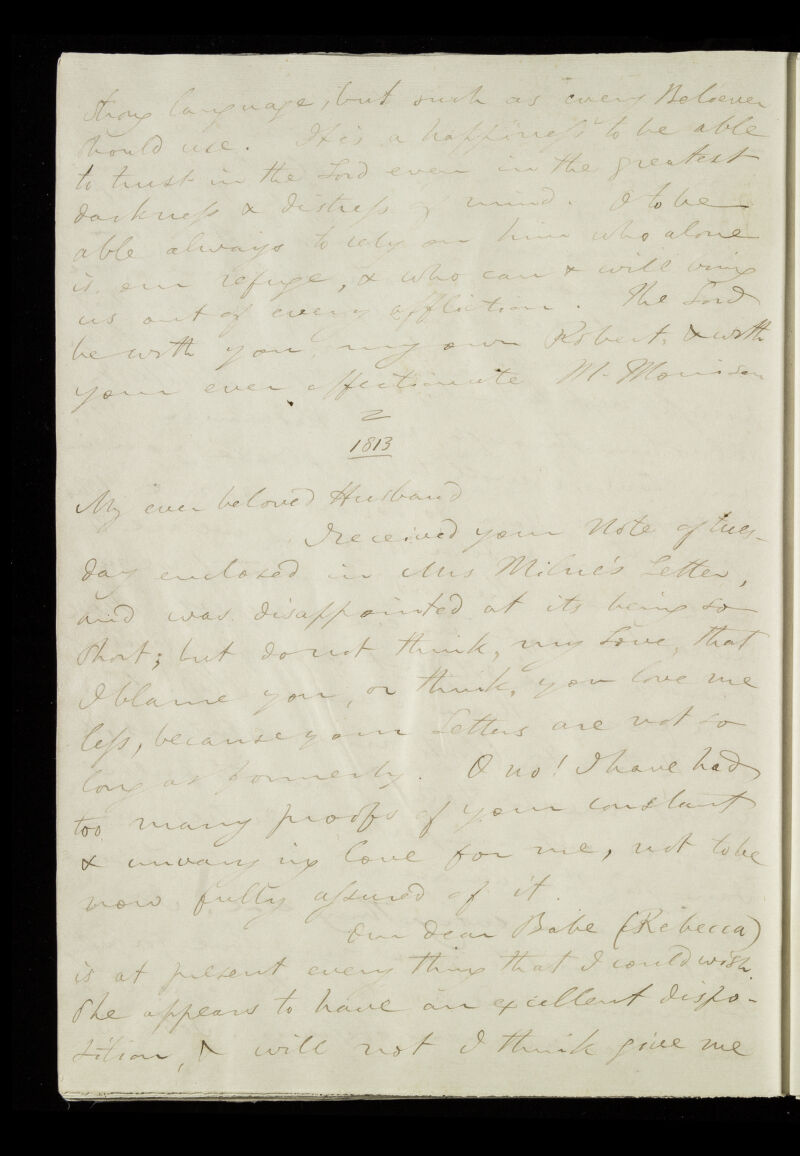 strong language, but such as every Believer
should use. It is a happiness to be able
to trust in the Lord even in the greatest
darkness & distress of mind. O to be
able always to rely on him who alone
is our refuge, & who can & will bring
us out of every affliction. The Lord
be with you, my own Robert, & with
your ever affectionate M. Morrison
2
1813
My ever beloved Husband
I received your Note of tues-
day enclosed in Mrs Milne's Letter,
and was disappointed at its being so
short; but do not think, my Love, that
I blame you, or think, you love me
less, because your Letters are not so
long as formerly. O no! I have had
too many proofs of your constant
& unvarying love for me, not to be
now fully assured of it.
Our dear Babe (Rebecca)
is at present every thing that I could wish.
She appears to have an excellent dispo-
sition, & will not I think give me